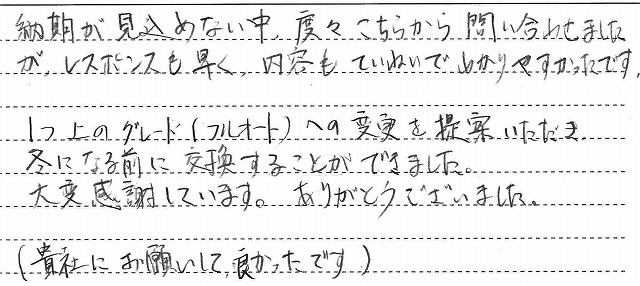 納期が見込めない中、度々こちらから問い合わせました
が、レスポンスも早く、内容もていねいでわかりやすかったです。
1つ上のグレード(フルオート)への変更を提案いただき、
冬になる前に交換することができました。
大変感謝しています。ありがとうございました。
(貴社にお願いして、良かったです)